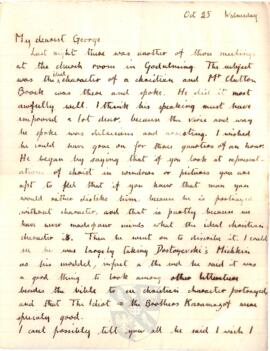 Oct 25 Wednesday
My dearest George
Last night there was another of those meetings
at the church room in Godalming. The subject
was the ideal character of a christian and Mr Clutton
Brock was there and spoke. He did it most
awfully well. I think his speaking must have
improved a lot since, because the voice and way
he spoke was delicious and arresting. I wished
he could have gone on for three quarters of an hour.
He began by saying that if you look at represent-
ations of christ in windows or pictures you are
apt to feel that if you knew that man you
would rather dislike him, because he is portrayed
without character, and that is partly because we
have never made our minds what the ideal christian
character is. Then he went on to describe it. I could
see he was largely taking Dostoyevski's Mishkin
as his model, infact in the end he said it was
a good thing to look among other literature
besides the bible to in christian character portrayed
and that The Idiot in the Brothers Karamazof were
specialy good.
I cant possibly tell you all he said I wish I